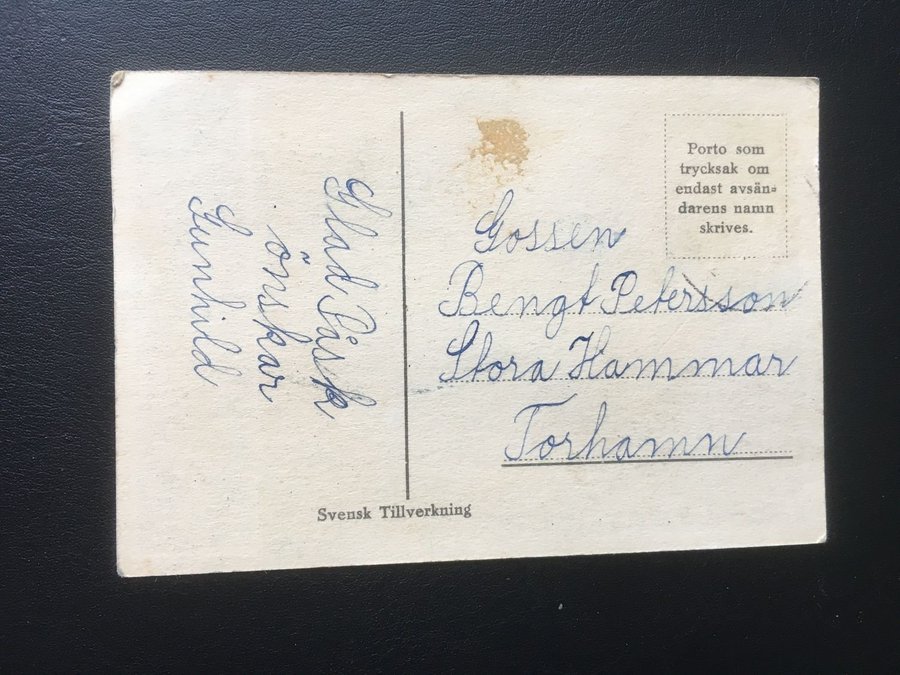 Glad Påsk
önskar
Gunhild
Porto som
trycksak om
endast avsän=
darens namn
skrives.
Gossen
Bengt Petersson
Stora Hammar
Torhamn
Svensk Tillverkning